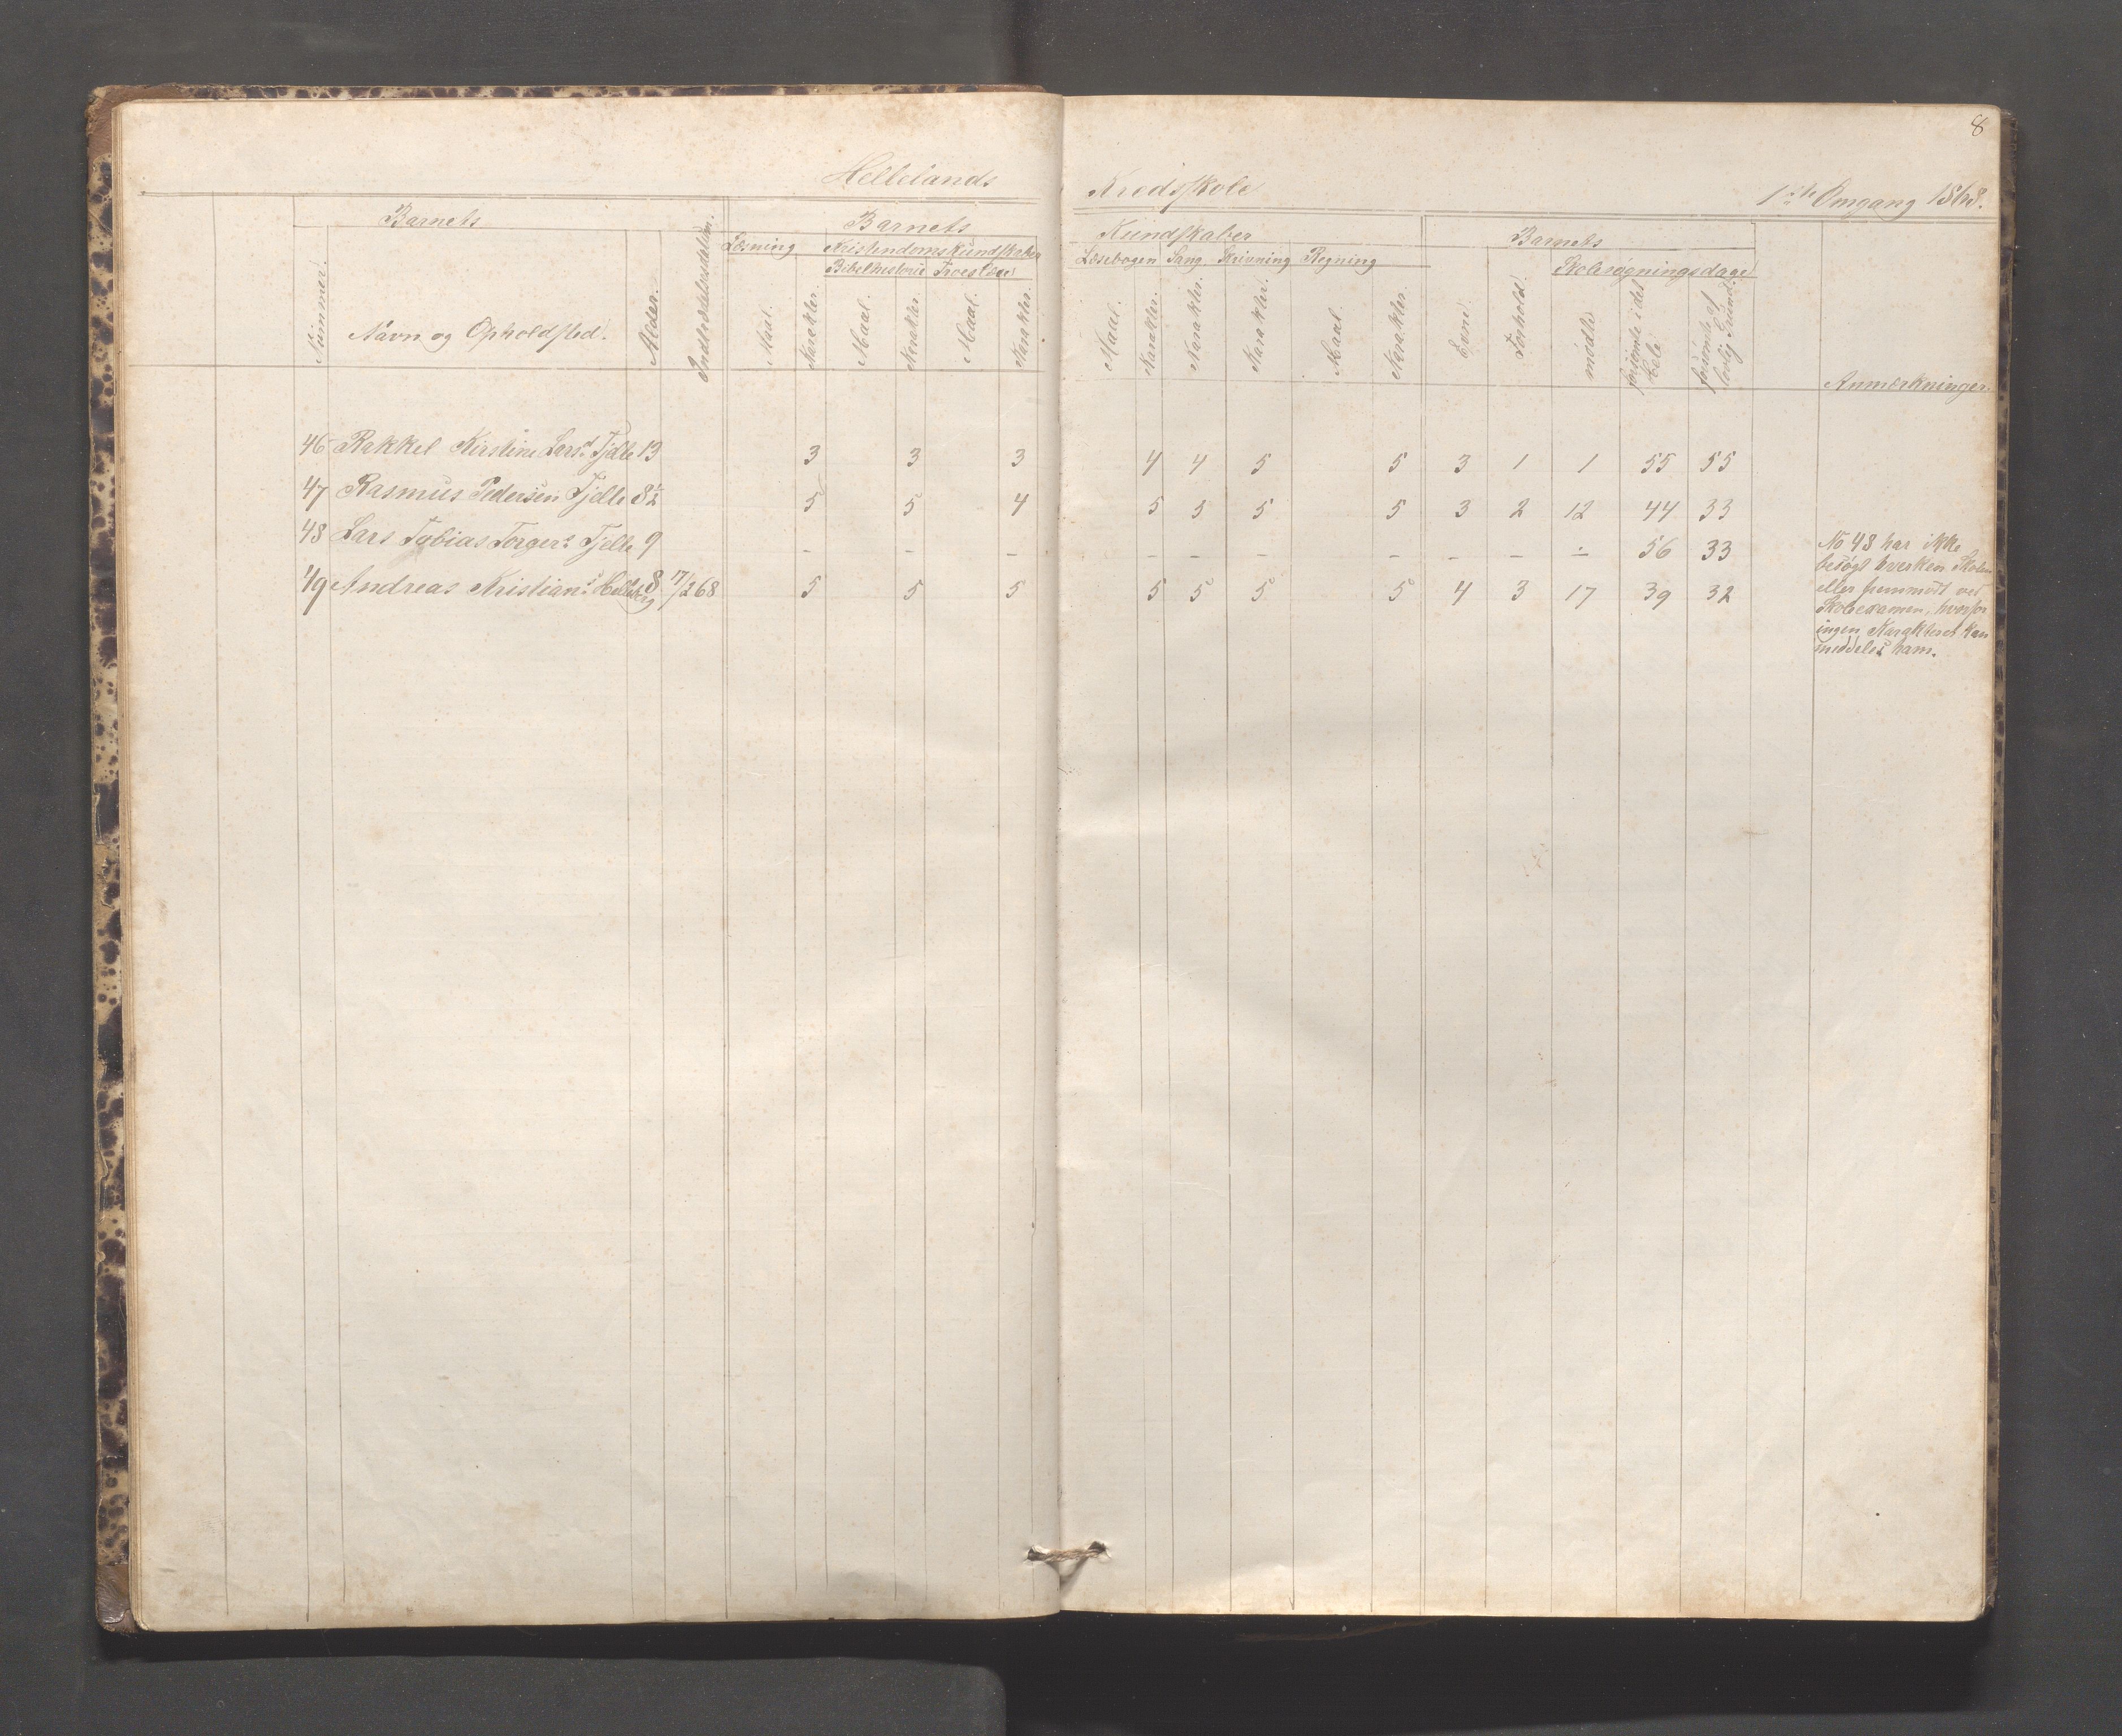 8
Hellelands Kredsskole 1ste Omgang 1868.
Barnets Barnets Kundskaber Barnets
Læsning Kristendomskundskaber Læsebogen Sang Skrivning Regning Skolesøgningsdage
Bibelhistorie Troeslære
Nummer. Navn og Opholdsted. Alder. Indtrædelsesdatum. Maal. Karakter. Maal. Karakter. Maal. Karakter. Maal. Karakter. Karakter. Karakter. Maal. Karakter. Evne. Forhold. mødte forsømte i det hele forsømte af lovlig Grund. Anmærkninger.
46 Rakkel Kirstine Larsd. Fjelle 13 3 3 3 4 4 5 5 3 1 1 55 55
47 Rasmus Pedersen Fjelle 8½ 5 5 4 5 5 5 5 3 2 12 44 33
48 Lars Tobias Torgers. Fjelle 9 – – – – – – – – – ÷ 56 33
49 Andreas Kristians. 8 17/2 68 5 5 5 5 5 5 5 4 3 17 39 32
No 48 har ikke
besøgt hverken Skolen
eller fremmødt ved
Skoleexamen, hvorfor
ingen Karakteret kan
meddeles ham.